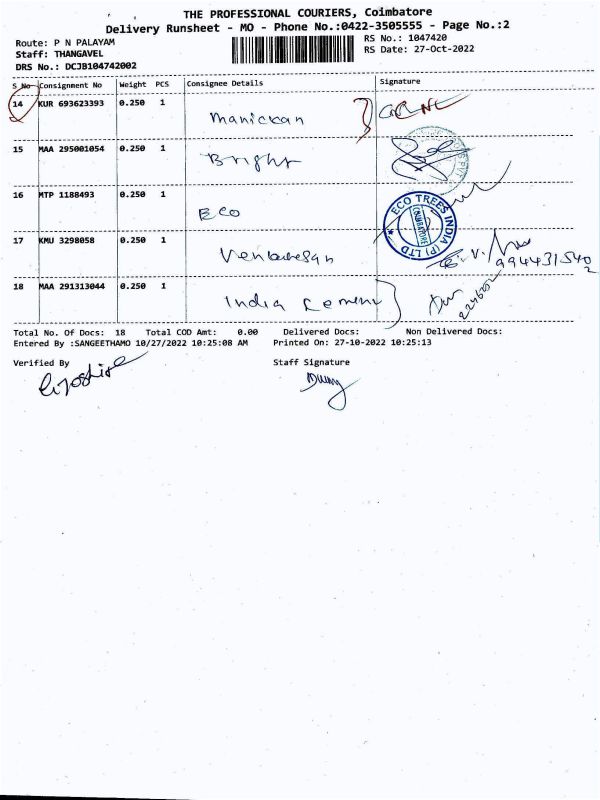 THE PROFESSIONAL COURIERS, Coimbatore
Delivery Runsheet - MO - Phone No.:0422-3505555 - Page No.:2
Route: P N PALAYAM
RS No.: 1047420
Staff: THANGAVEL
RS Date: 27-Oct-2022
DRS No.: DCJB104742002
S No Consignment No Weight PCS Consignee Details Signature
14 KUR 693623393 0.250 1
Manickan
15 MAA 295001054 0.250 1
Bright
16 MTP 1188493 0.250 1
Eco
ECO TREES INDIA (P) LTD
COIMBATORE
17 KMU 3298058 0.250 1
Venkatesan
18 MAA 291313044 0.250 1
India Cement
Total No. Of Docs: 18 Total COD Amt: 0.00 Delivered Docs: Non Delivered Docs:
Entered By :SANGEETHAMO 10/27/2022 10:25:08 AM Printed On: 27-10-2022 10:25:13
Verified By Staff Signature